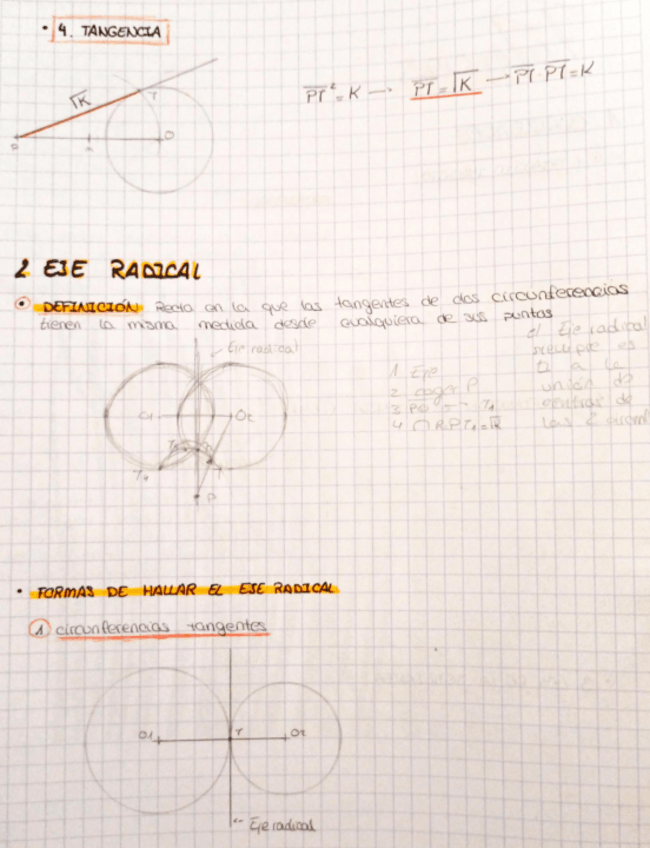 • 4. TANGENCIA
√K
T
P
O
PT² = K → PT = √K → PT · PT = K
2 EJE RADICAL
DEFINICIÓN Recta en la que las tangentes de dos circunferencias
tienen la misma medida desde cualquiera de sus puntos
Eje radical
O1
O2
T1
T
P
1 Eje
2 coger P
3 PO → T1
el Eje radical
siempre es
a la
unión de
centros de
las 2 circunf
• FORMAS DE HALLAR EL EJE RADICAL
1 circunferencias tangentes
O1
T
O2
Eje radical